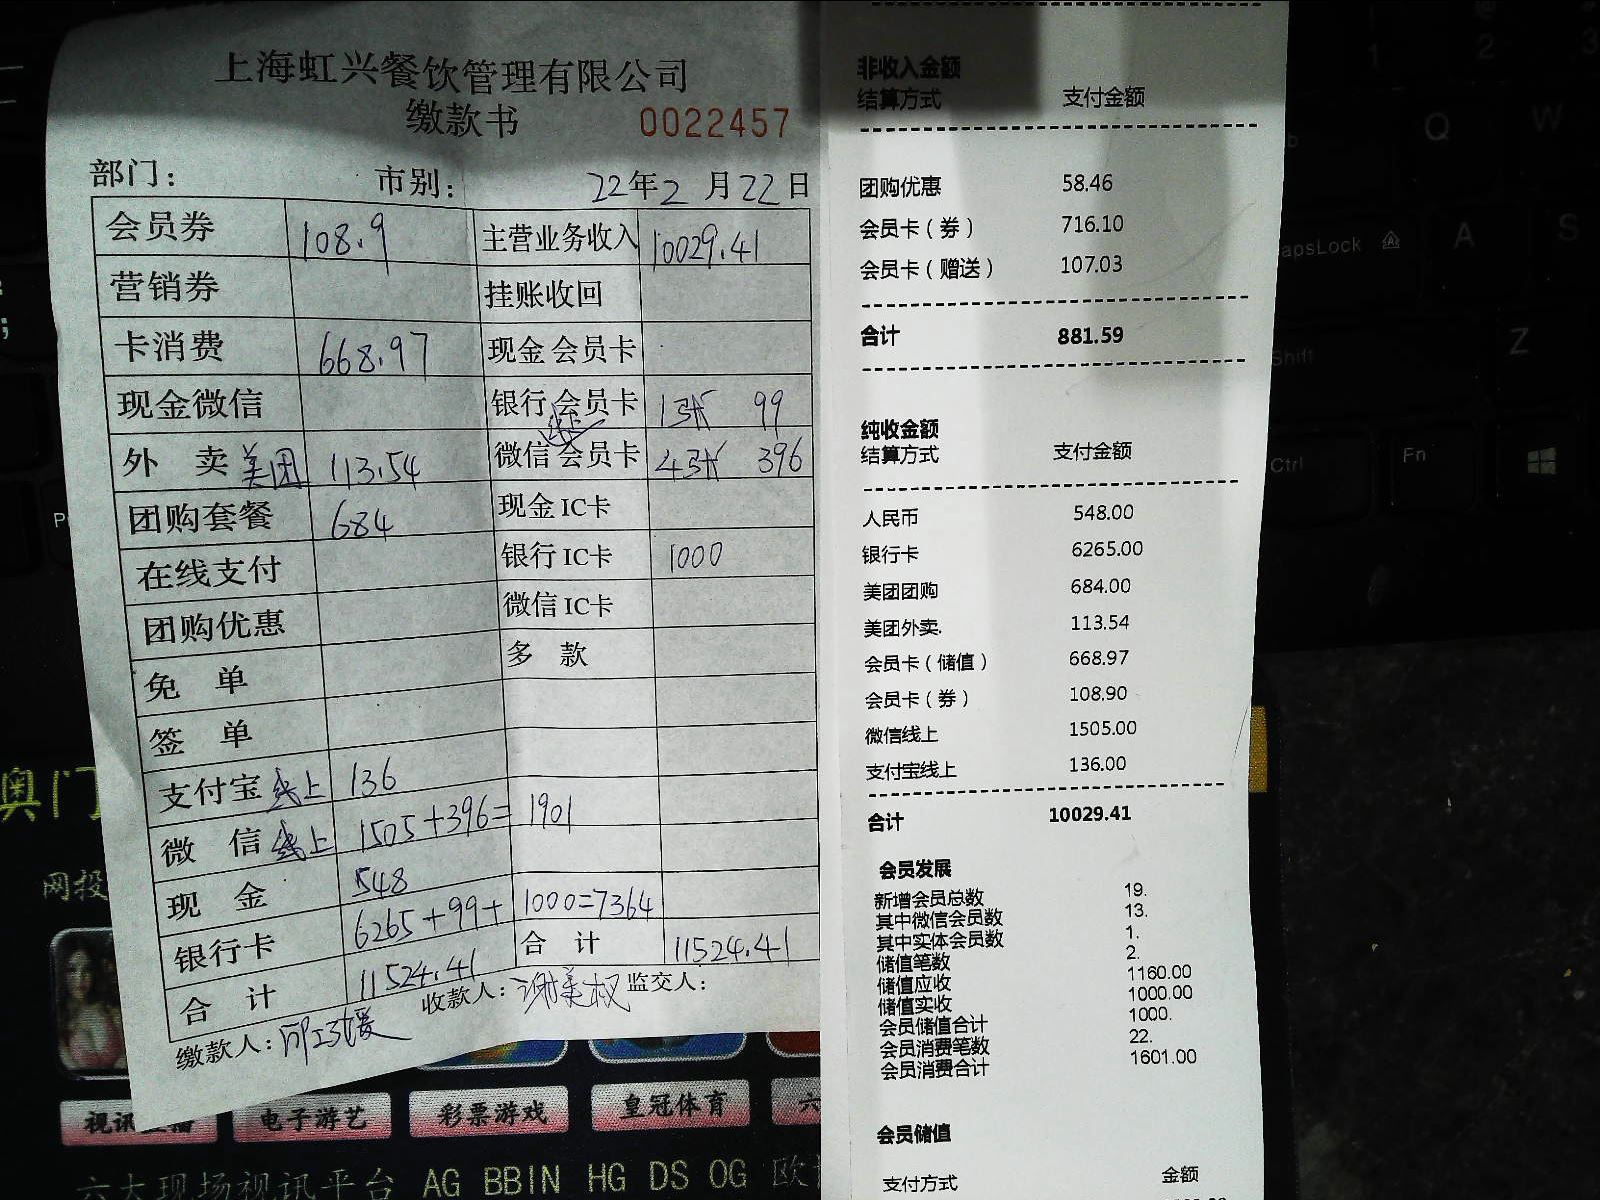 上海虹兴餐饮管理有限公司
缴款书 0022457
部门： 市别： 22年2月22日
会员券 108.9 主营业务收入 10029.41
营销券 挂账收回
卡消费 668.97 现金会员卡
现金微信 银行会员卡 1张 99
外卖美团 113.54 微信会员卡 4张 396
团购套餐 684 现金IC卡
在线支付 银行IC卡 1000
团购优惠 微信IC卡
免单 多款
签单
支付宝线上 136
微信线上 1505+396=1901
现金 548
银行卡 6265+99+1000=7364
合计 11524.41 合计 11524.41
缴款人： 收款人：谢美权 监交人：
非收入金额
结算方式 支付金额
团购优惠 58.46
会员卡（券） 716.10
会员卡（赠送） 107.03
合计 881.59
纯收金额
结算方式 支付金额
人民币 548.00
银行卡 6265.00
美团团购 684.00
美团外卖. 113.54
会员卡（储值） 668.97
会员卡（券） 108.90
微信线上 1505.00
支付宝线上 136.00
合计 10029.41
会员发展
新增会员总数 19.
其中微信会员数 13.
其中实体会员数 1.
储值笔数 2.
储值应收 1160.00
储值实收 1000.00
会员储值合计 1000.
会员消费笔数 22.
会员消费合计 1601.00
会员储值
支付方式 金额
Q W
A S
CapsLock
Z
Shift
Ctrl Fn
奥门
网投
电子游艺 彩票游戏 皇冠体育 六
六大现场视讯平台 AG BBIN HG DS OG 欧